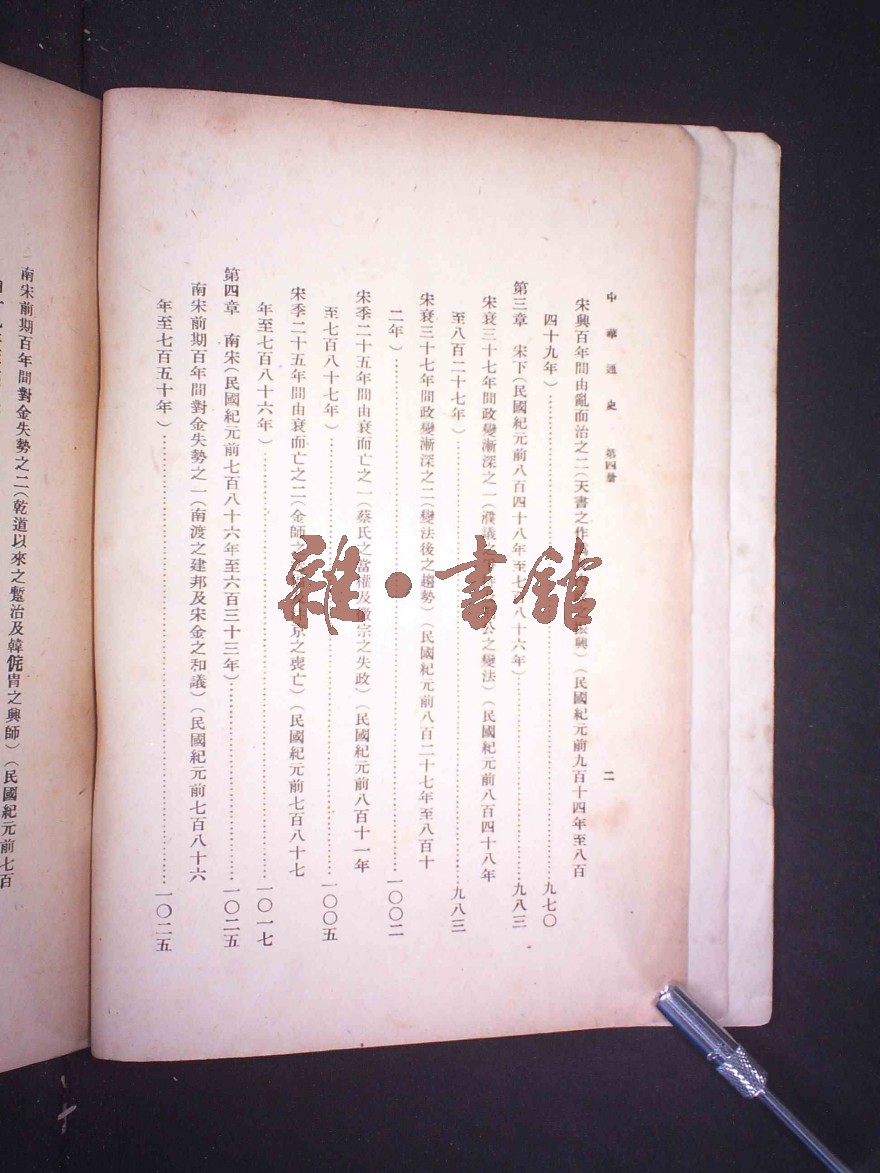 中華通史 第四册 二
宋興百年間由亂而治之二(天書之作 興)(民國紀元前九百十四年至八百
四十九年)……九七〇
第三章 宋下(民國紀元前八百四十八年至七百八十六年)……九八三
宋衰三十七年間政變漸深之一(濮議 公之變法)(民國紀元前八百四十八年
至八百二十七年)……九八三
宋衰三十七年間政變漸深之二(變法後之趨勢)(民國紀元前八百二十七年至八百十
二年)……一〇〇二
宋季二十五年間由衰而亡之一(蔡氏之當權及徽宗之失政)(民國紀元前八百十一年
至七百八十七年)……一〇〇五
宋季二十五年間由衰而亡之二(金師之 京之喪亡)(民國紀元前七百八十七
年至七百八十六年)……一〇一七
第四章 南宋(民國紀元前七百八十六年至六百三十三年)……一〇二五
南宋前期百年間對金失勢之一(南渡之建邦及宋金之和議)(民國紀元前七百八十六
年至七百五十年)……一〇二五
南宋前期百年間對金失勢之二(乾道以來之蹔治及韓侂冑之興師)(民國紀元前七百
雜·書館